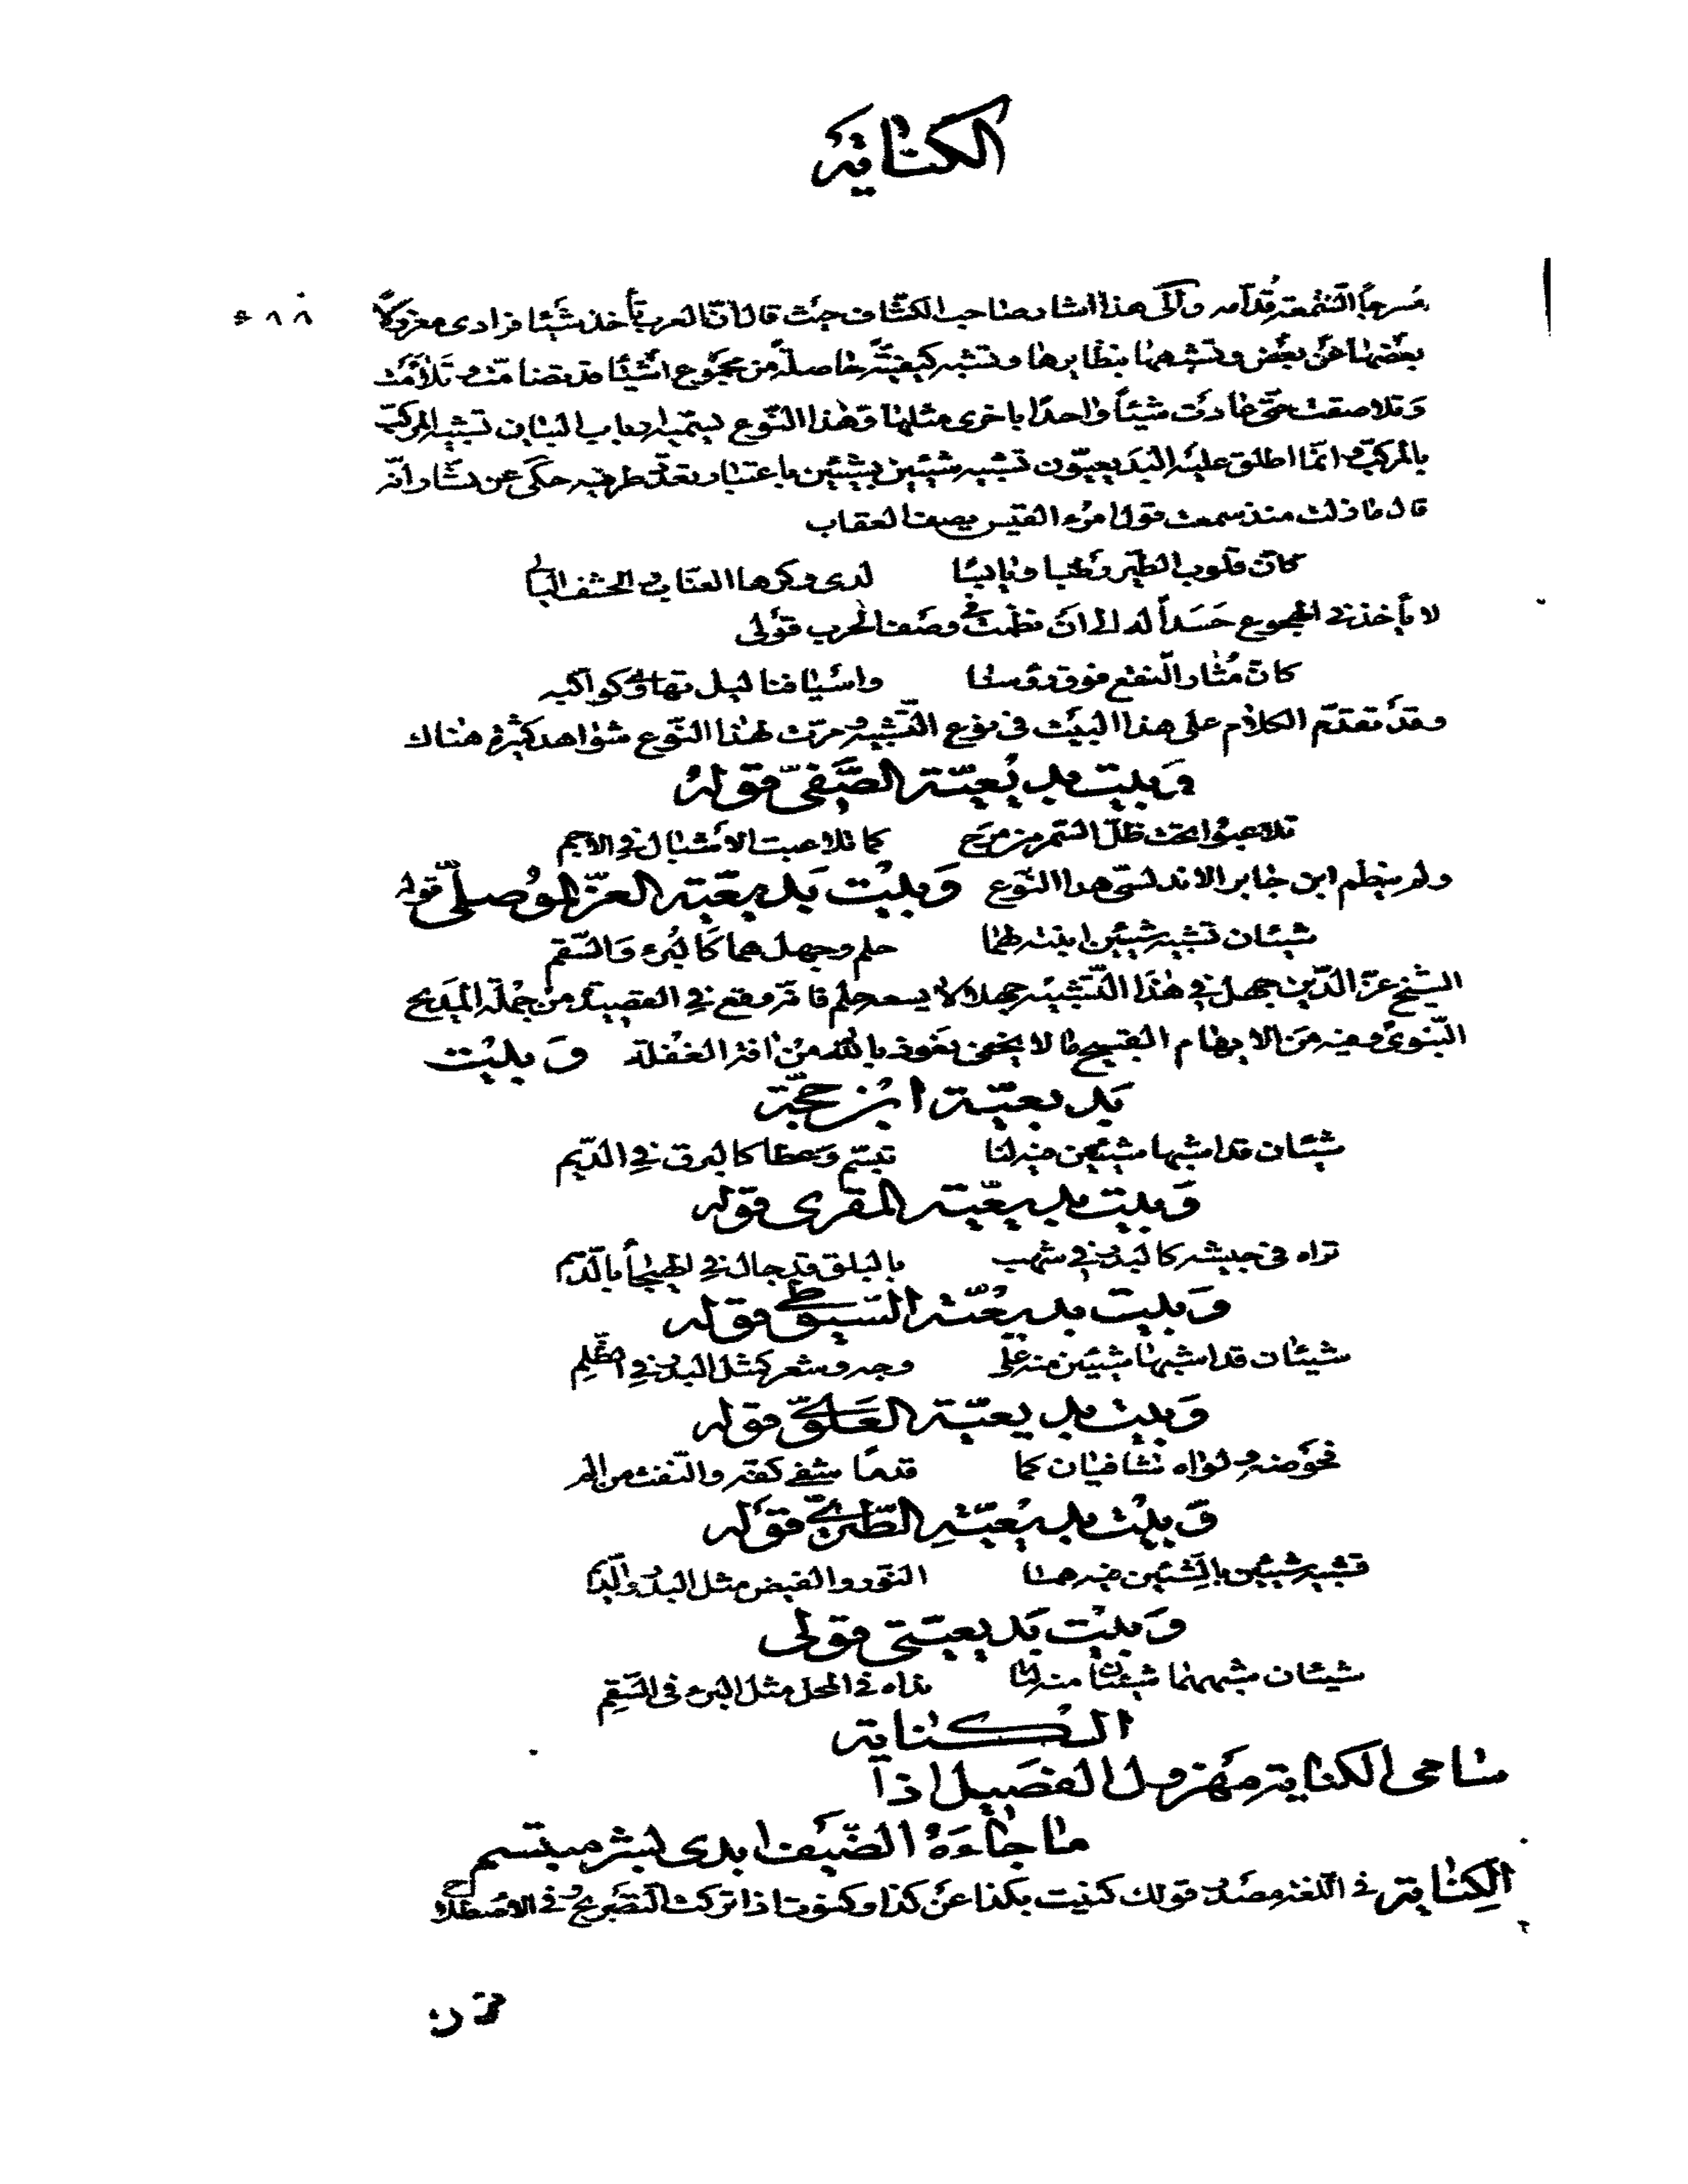 الكناية
مسرجا الشمعة قدامه والى هذا اشار صاحب الكشاف حيث قال انّ العرب تأخذ شيئا فرادى معزولا
بعضها عن بعض وتشبهها بنظايرها وتشبه كيفيّة حاصلة من مجموع اشيئا قد تضامّت وتلاءمت
وتلاصقت حتى عادت شيئاً واحدًا باخرى مثلها وهذا النّوع ليسميه ارباب البيان تشبيه المركّب
بالمركّب وانّما اطلق عليه البديعيّون تشبيه شيئين بشيئين باعتبار تعدّد طرفيه حكى عن بشّار انّه
قال ما زلت منذ سمعت قول امرء القيس يصف العقاب
كانّ قلوب الطّير رطبا ويابسًا لدى وكرها العنّاب والحشف البالى
لا يأخذنى الهجوع حَسَداً له الى ان نظمت فى وصف الحرب قولى
كانّ مُثار النّقع فوق رؤسنا واسيافنا ليل تهاوى كواكبه
وقد تقدّم الكلام على هذا البيت فى نوع التّشبيه ومرّت لهذا النّوع شواهد كثيرة هناك
وَبيت بديعيّة الصَّفىّ قوله
تلاعبوا تحت ظلّ السّمر من مرح كما تلاعبت الاشبال فى الاجم
ولم ينظم ابن جابر الاندلسى هذا النّوع وَبيْت بَديعيّة العزّ الموُصلىّ قوله
شيئان تشبيه شيئين انتبه لهما حلم وجهل هما كالبُرء وَالسّقم
الشّيخ عزّ الدّين جهل فى هذا التّشبيه جهلا لا يسعه حلم فانّه وقع فى القصيدة من جُملة المديح
النّبوىّ وفيه مَن الابهام القبيح ما لا يخفى نعوذ باللّه من افة الغفلة وَبيْت
بَديعيّة ابن حجّة
شيئان قد اشبها شيئين فيه لنا تبسّم وَعطا كالبرق فى الدّيم
وَبيت بديعيّة المقرى قوله
تراه فى جيشه كالبدر فى شهب بالبلق قد جال فى الهيجاء بالدّهم
وَبيت بديعيّة السّيوطى قوله
شيئان قد اشبها شيئين منه على وجه وشعر كمثل البدر فى الظّلم
وَبيت بديعيّة العَلوىّ قوله
فحوضه ولواه شافيان كما قدمًا شفى كفّه والنّفث من الم
وَبيْت بديعيّةِ الطّبرىّ قوله
تشبيه شيئين بالشّيئين فيه هما النّور والفيض مثل البدر والدّيم
وَبيْت بَديعيّتى قولى
شيئان شبههما شيئان منه لنا نداه فى المحل مثل البرء فى السّقم
الكناية
سامى الكناية مَهزول الفصَيل اذا
ما جاءَهُ الضّيف ابدى لبشر مبتسم
الكِناية فى اللّغة مصدر قولك كنيت بكذا عَن كذا وكنوت اذا تركت التّصريح وفى الاصطلاح